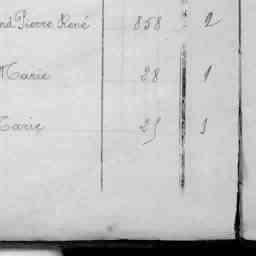 nd Pierre René 858 2
Marie 28 1
Marie 25 1